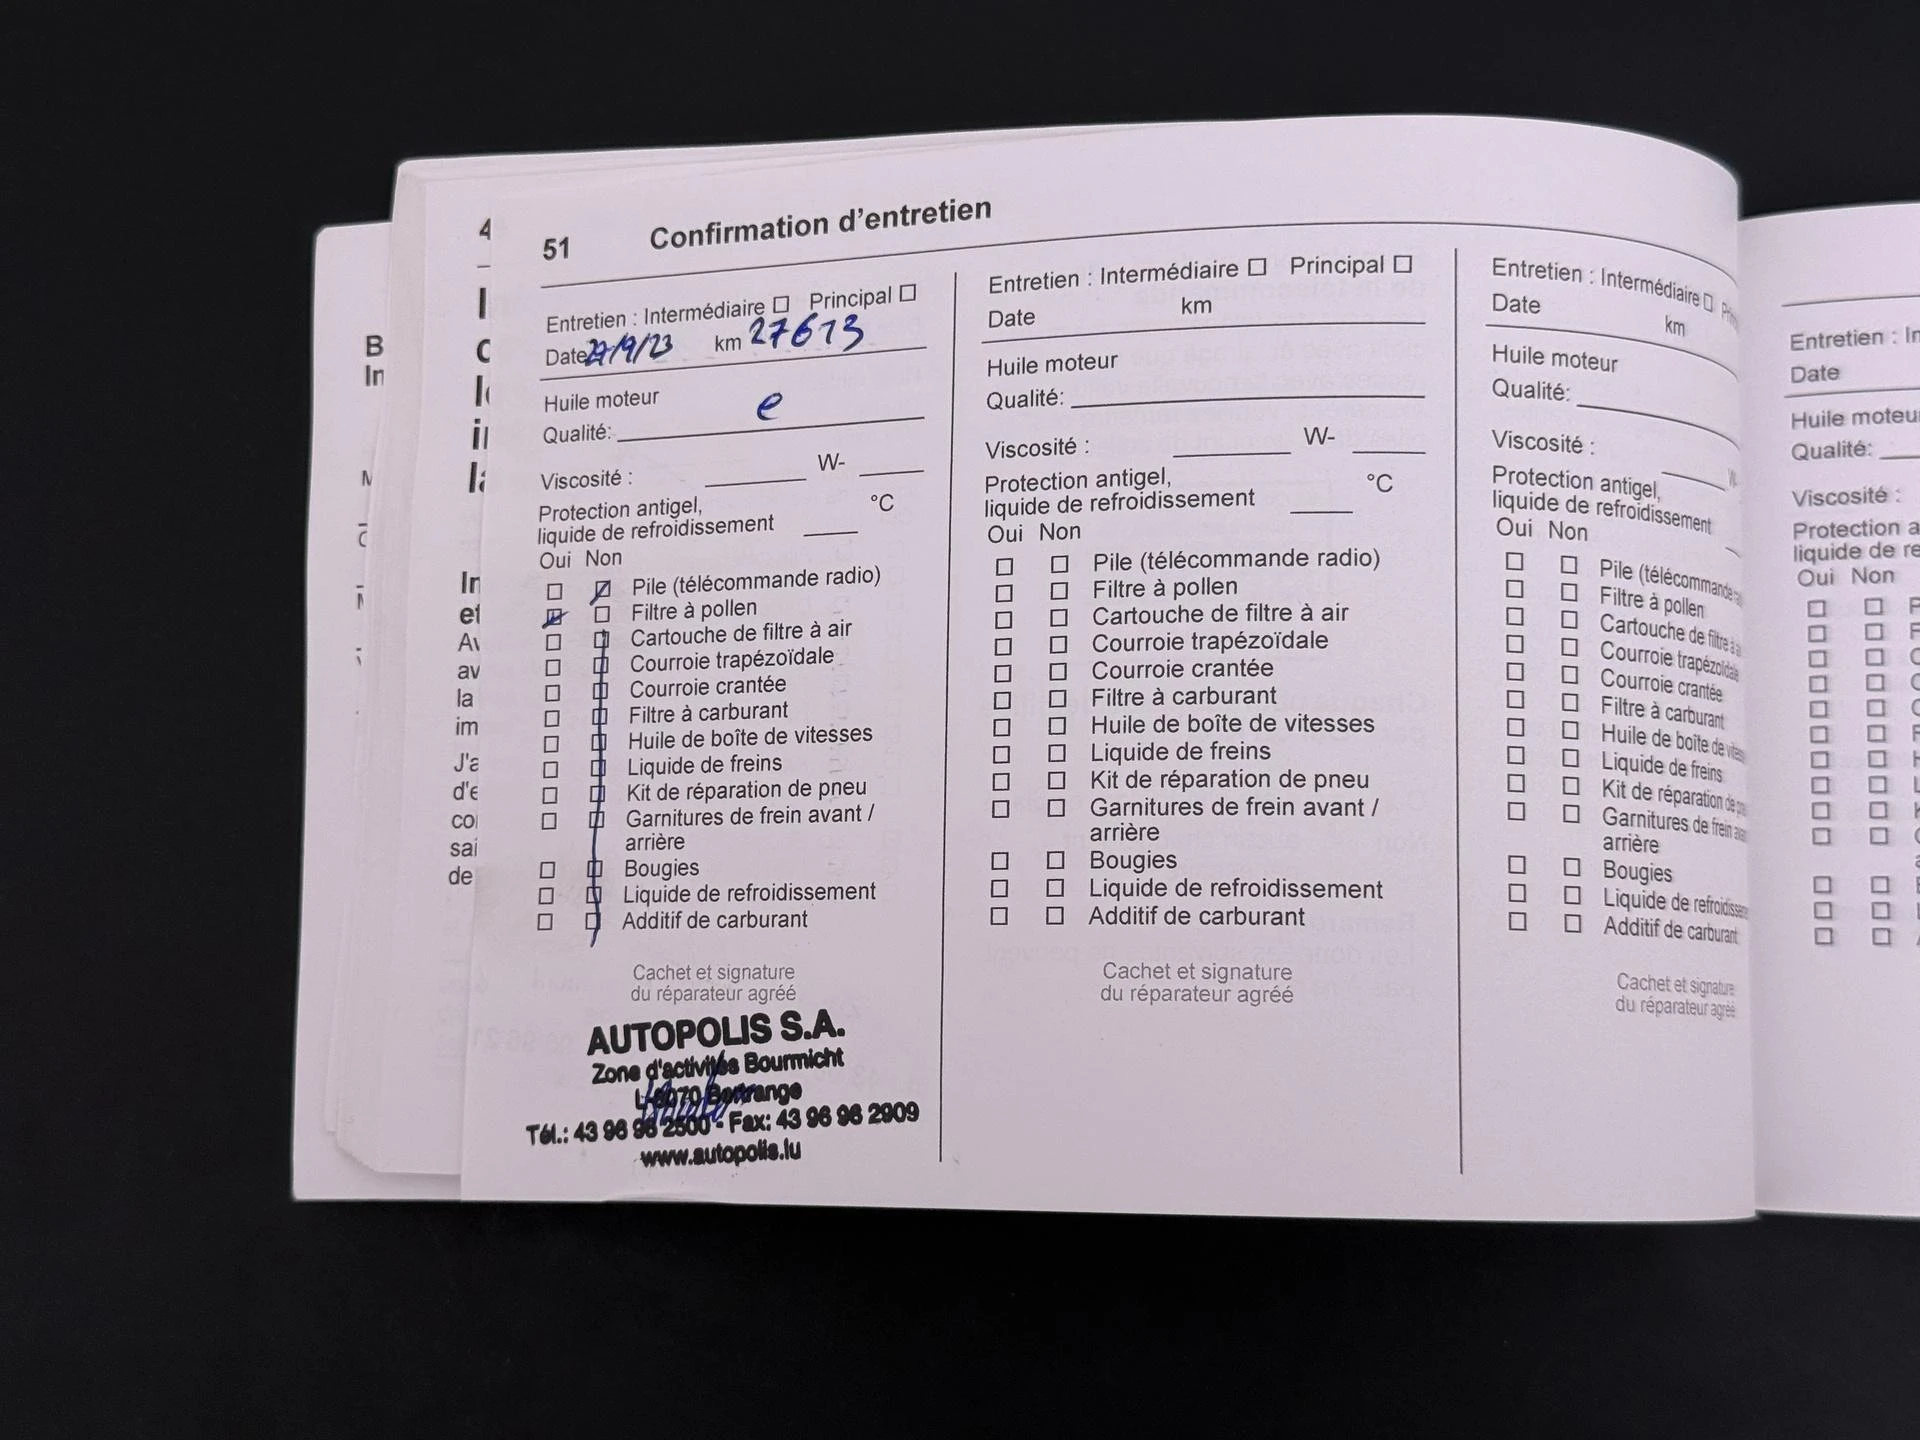 51 Confirmation d'entretien
Entretien : Intermédiaire ☐ Principal ☐
Date /9/23 km 27613
Huile moteur
Qualité: e
Viscosité : W-
Protection antigel,
liquide de refroidissement °C
Oui Non
Pile (télécommande radio)
Filtre à pollen
Cartouche de filtre à air
Courroie trapézoïdale
Courroie crantée
Filtre à carburant
Huile de boîte de vitesses
Liquide de freins
Kit de réparation de pneu
Garnitures de frein avant /
arrière
Bougies
Liquide de refroidissement
Additif de carburant
Cachet et signature
du réparateur agréé
AUTOPOLIS S.A.
Zone d'activités Bourmicht
L-8070 Bertrange
Tél.: 43 96 96 2500 - Fax: 43 96 96 2909
www.autopolis.lu
Entretien : Intermédiaire ☐ Principal ☐
Date km
Huile moteur
Qualité:
Viscosité : W-
Protection antigel,
liquide de refroidissement °C
Oui Non
Pile (télécommande radio)
Filtre à pollen
Cartouche de filtre à air
Courroie trapézoïdale
Courroie crantée
Filtre à carburant
Huile de boîte de vitesses
Liquide de freins
Kit de réparation de pneu
Garnitures de frein avant /
arrière
Bougies
Liquide de refroidissement
Additif de carburant
Cachet et signature
du réparateur agréé
Entretien : Intermédiaire ☐
Date km
Huile moteur
Qualité:
Viscosité :
Protection antigel,
liquide de refroidissement
Oui Non
Pile (télécommande
Filtre à pollen
Cartouche de filtre à
Courroie trapézoïdale
Courroie crantée
Filtre à carburant
Huile de boîte de
Liquide de freins
Kit de réparation de
Garnitures de frein
arrière
Bougies
Liquide de
Additif de carburant
Cachet et signature
du réparateur agréé
Entretien : In
Date
Huile moteu
Qualité:
Viscosité :
Protection a
liquide de re
Oui Non